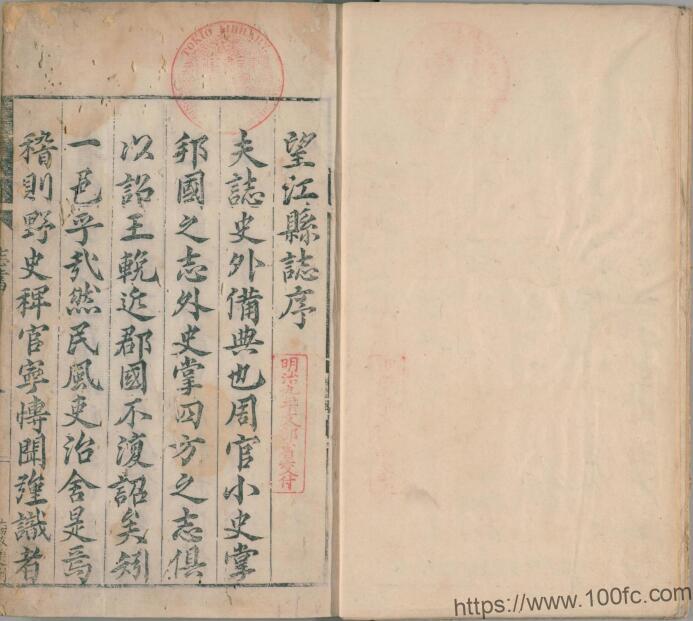 望江縣誌序
夫誌史外備典也周官小史掌
邦國之志外史掌四方之志俱
以詔王輓近郡國不復詔矣矧
一邑乎哉然民風吏治舍是焉
稽則野史稗官寧博聞彊識者
TOKIO LIBRARY
明治九年文部省交付
https://www.100fc.com